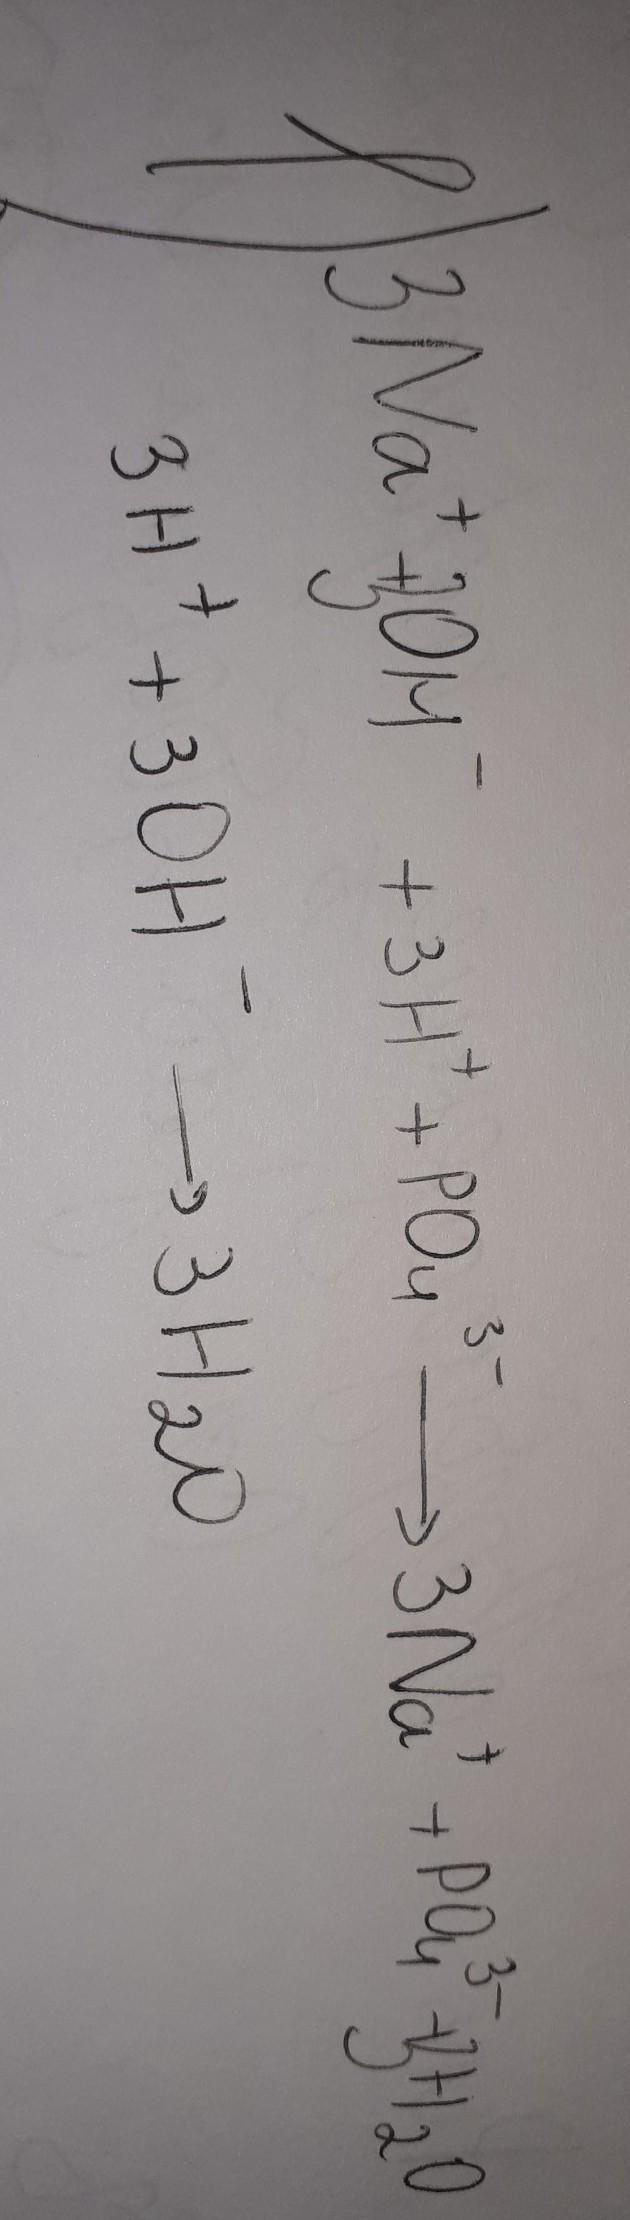 f) 3Na⁺ + 3OH⁻ + 3H⁺ + PO₄³⁻ → 3Na⁺ + PO₄³⁻ + 3H₂O
3H⁺ + 3OH⁻ → 3H₂O